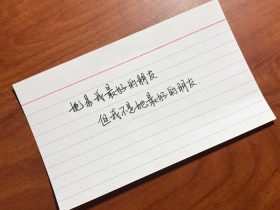 她是我最好的朋友
但我不是她最好的朋友